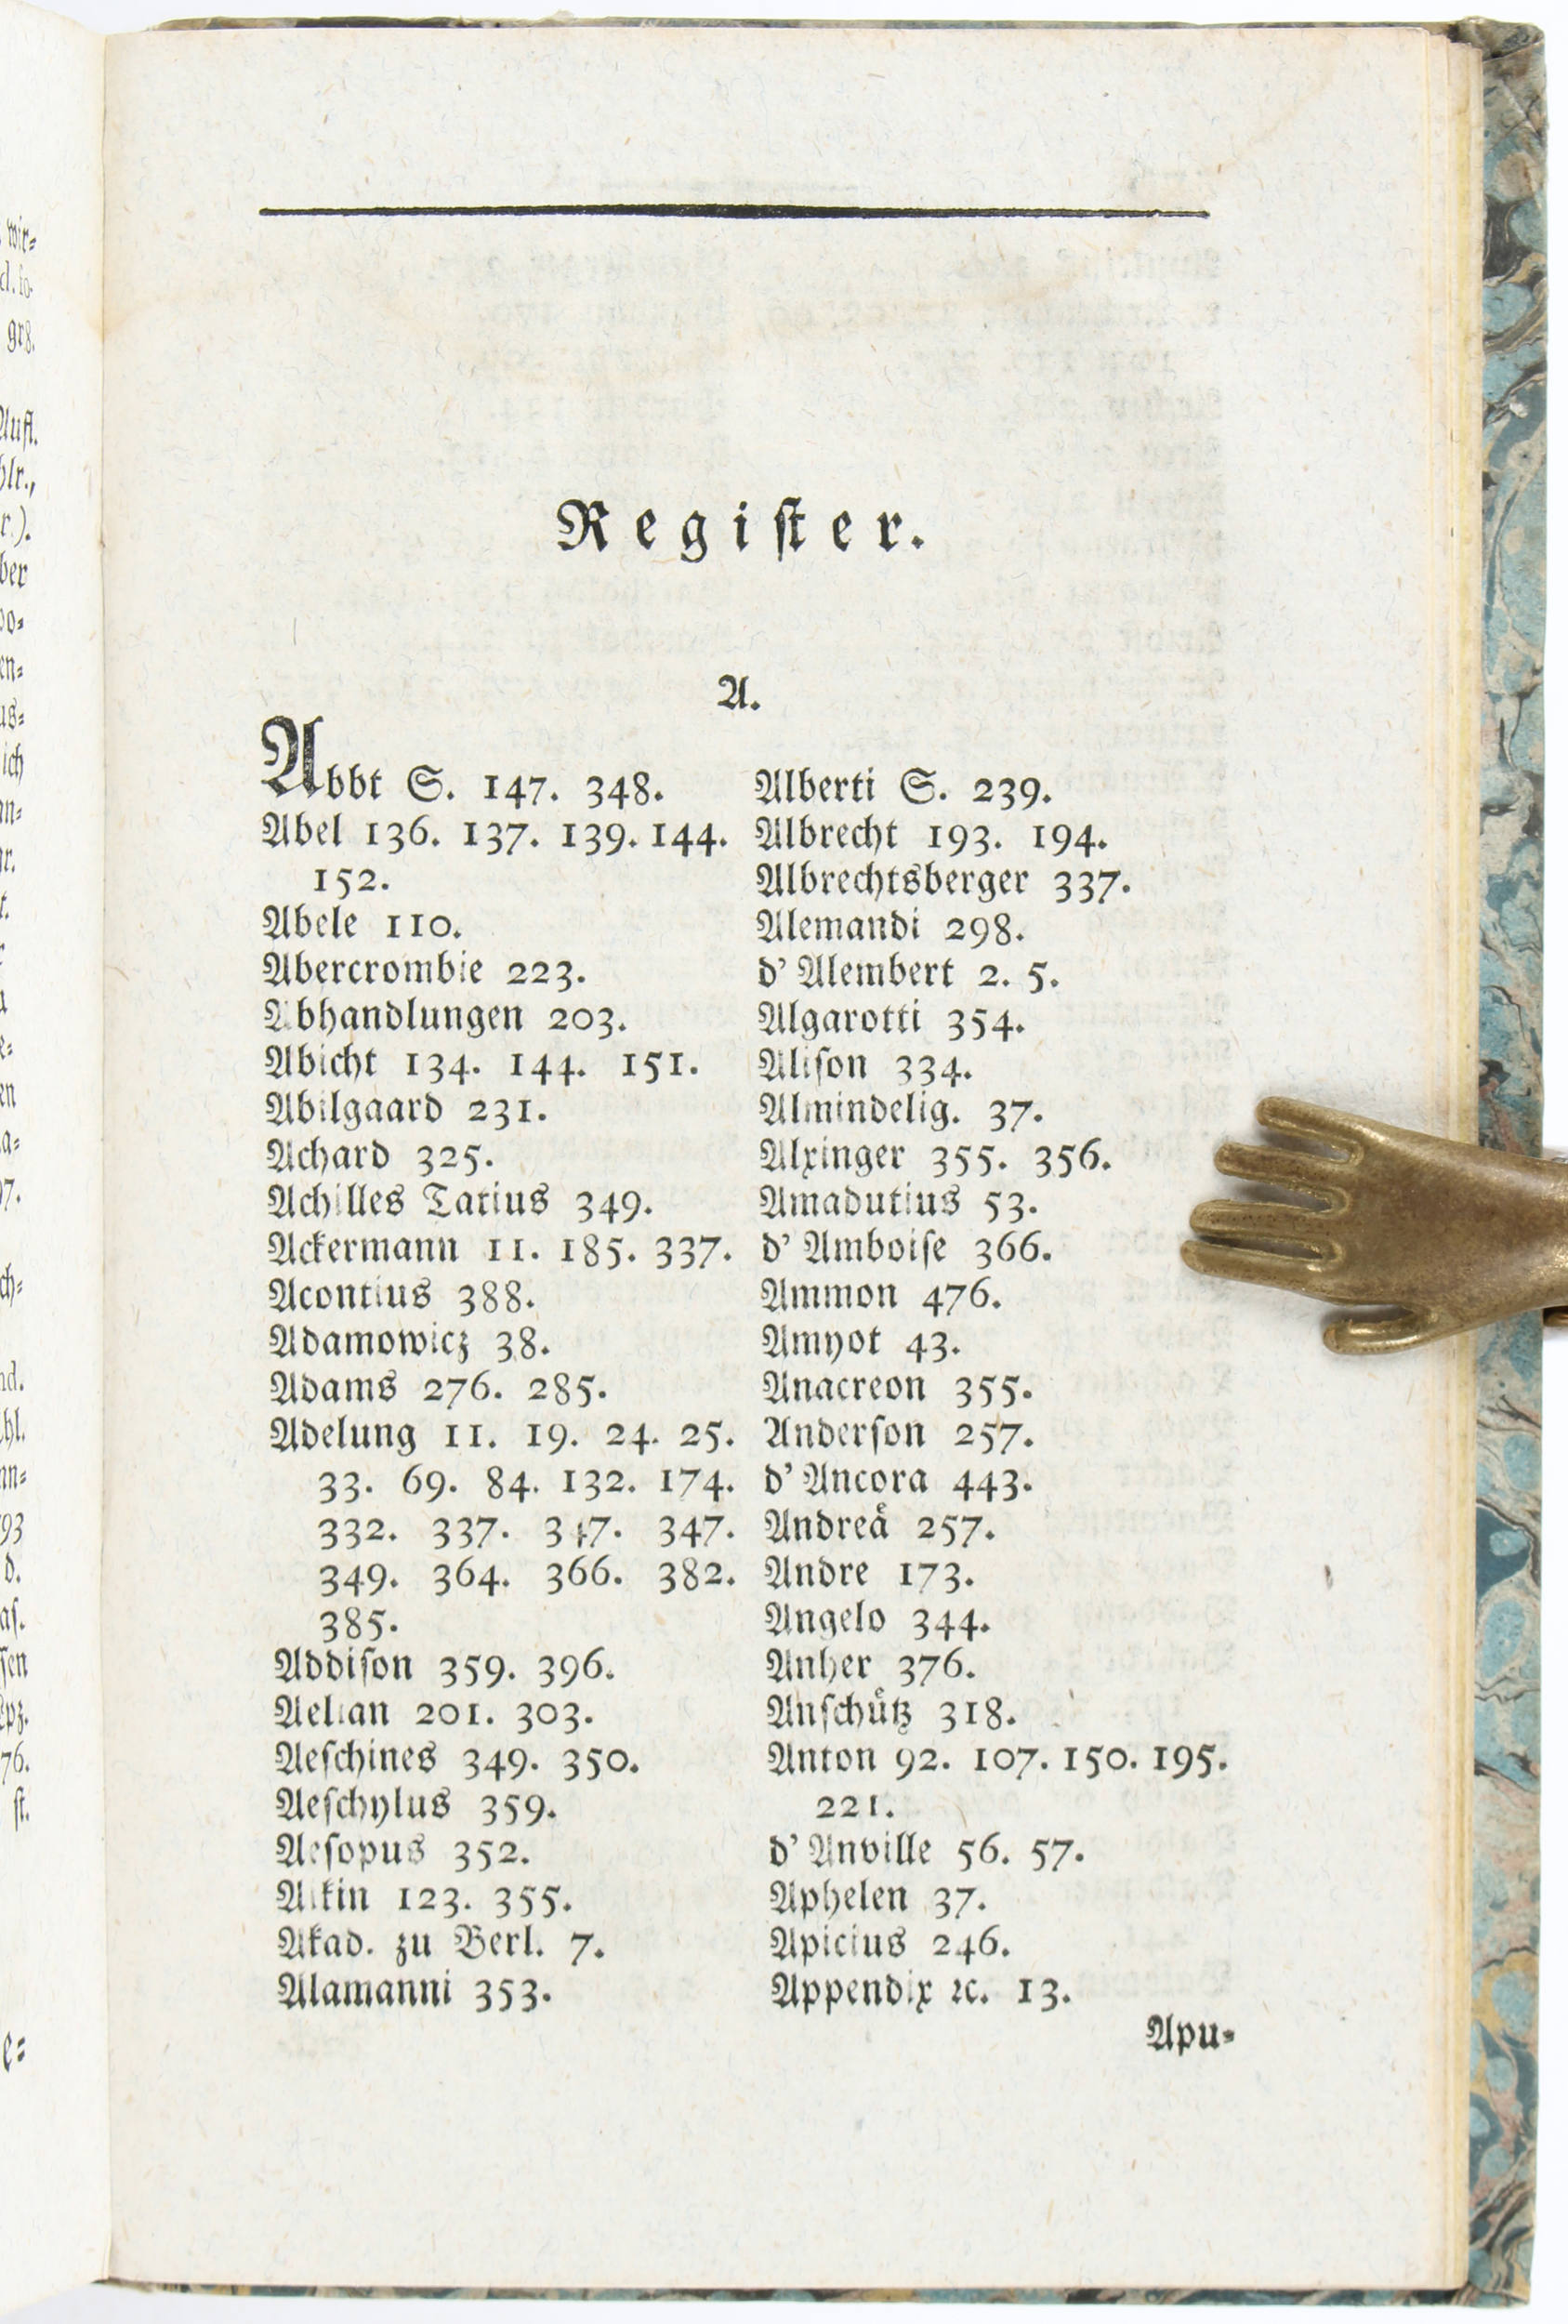 Regiſter.
A.
Abbt S. 147. 348.
Abel 136. 137. 139. 144.
152.
Abele 110.
Abercrombie 223.
Abhandlungen 203.
Abicht 134. 144. 151.
Abilgaard 231.
Achard 325.
Achilles Tatius 349.
Ackermann 11. 185. 337.
Acontius 388.
Adamowicz 38.
Adams 276. 285.
Adelung 11. 19. 24. 25.
33. 69. 84. 132. 174.
332. 337. 347. 347.
349. 364. 366. 382.
385.
Addiſon 359. 396.
Aelian 201. 303.
Aeſchines 349. 350.
Aeſchylus 359.
Aeſopus 352.
Aikin 123. 355.
Akad. zu Berl. 7.
Alamanni 353.
Alberti S. 239.
Albrecht 193. 194.
Albrechtsberger 337.
Alemandi 298.
d' Alembert 2. 5.
Algarotti 354.
Aliſon 334.
Almindelig. 37.
Alxinger 355. 356.
Amadutius 53.
d' Amboiſe 366.
Ammon 476.
Amyot 43.
Anacreon 355.
Anderſon 257.
d' Ancora 443.
Andreaͤ 257.
Andre 173.
Angelo 344.
Anher 376.
Anſchuͤtz 318.
Anton 92. 107. 150. 195.
221.
d' Anville 56. 57.
Aphelen 37.
Apicius 246.
Appendix ꝛc. 13.
Apu⸗